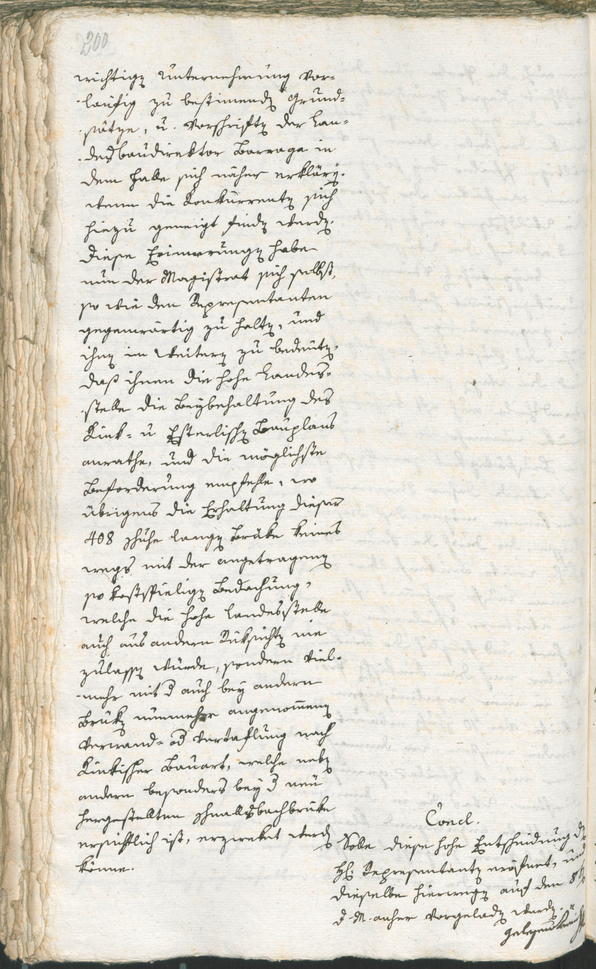 200
wichtigen Unternehmung vor-
läufig zu bestimmenden Grund-
sätze, u. Vorschriften der Lan-
desbaudirektor Baraga in
dem habe sich näher erklären,
wenn die Konkurrenten sich
hiezu geneigt finden werden.
Diese Erinnerungen habe
nun der Magistrat sich selbst,
so wie den Representanten
gegenwärtig zu halten, und
ihnen im Weitern zu bedeuten,
daß ihnen die hohe Landes-
stelle die Beybehaltung des
Kink- u Esterlischen Bauplans
anrathe, und die möglichste
Beförderung empfehle, wo
übrigens die Erhaltung dieser
408 Schuhe langen Brüke keines
wegs mit der angetragenen
so kostspieligen Bedachung,
welche die hohe Landesstelle
auch aus andern Rüksichten nie
zulassen würde, sondern viel-
mehr mit d auch bey andern
Brüken nunmehr angenommenen
Verwand- od Vertäflung nach
Kinkischer Bauart, welche nebst
andern besonders bey d neu
hergestellten Schmalzbachbrüke
ersichtlich ist, erzweket werden
könne.
Concl.
Solle diese hohe Entscheidung den
HH Representanten eröfnet, und
dieselbe hierwegen auf den 8ten
d. M. anher vorgeladen werden.